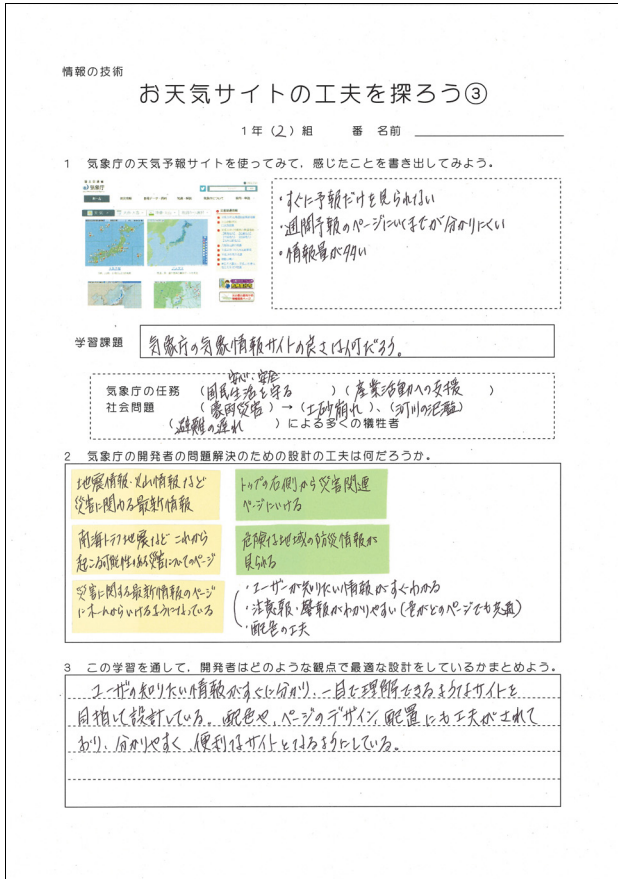 情報の技術
お天気サイトの工夫を探ろう③
1年(2)組　番　名前
1　気象庁の天気予報サイトを使ってみて，感じたことを書き出してみよう。
・すぐに予報だけを見られない
・週間予報のページにいくまでが分かりにくい
・情報量が多い
気象庁
学習課題　気象庁の気象情報サイトの良さは何だろう。
安心・安全
気象庁の任務　(国民生活を守る)(産業活動への支援)
社会問題　(豪雨災害)→(土砂崩れ)、(河川の氾濫)
(避難の遅れ)による多くの犠牲者
2　気象庁の開発者の問題解決のための設計の工夫は何だろうか。
地震情報・火山情報など
災害に関わる最新情報
トップの右側から災害関連
ページにいける
南海トラフ地震など これから
起こる可能性がある災害についてのページ
危険な地域の防災情報が
見られる
災害に関する最新情報のページ
にホームからいけるようになっている
・ユーザーが知りたい情報がすぐわかる
・注意報・警報がわかりやすい(色がどのページでも共通)
・配色の工夫
3　この学習を通して，開発者はどのような観点で最適な設計をしているかまとめよう。
ユーザの知りたい情報がすぐに分かり、一目で理解できるようなサイトを
目指して設計している。配色や、ページのデザイン、配置にも工夫がされて
おり、分かりやすく、便利なサイトとなるようにしている。